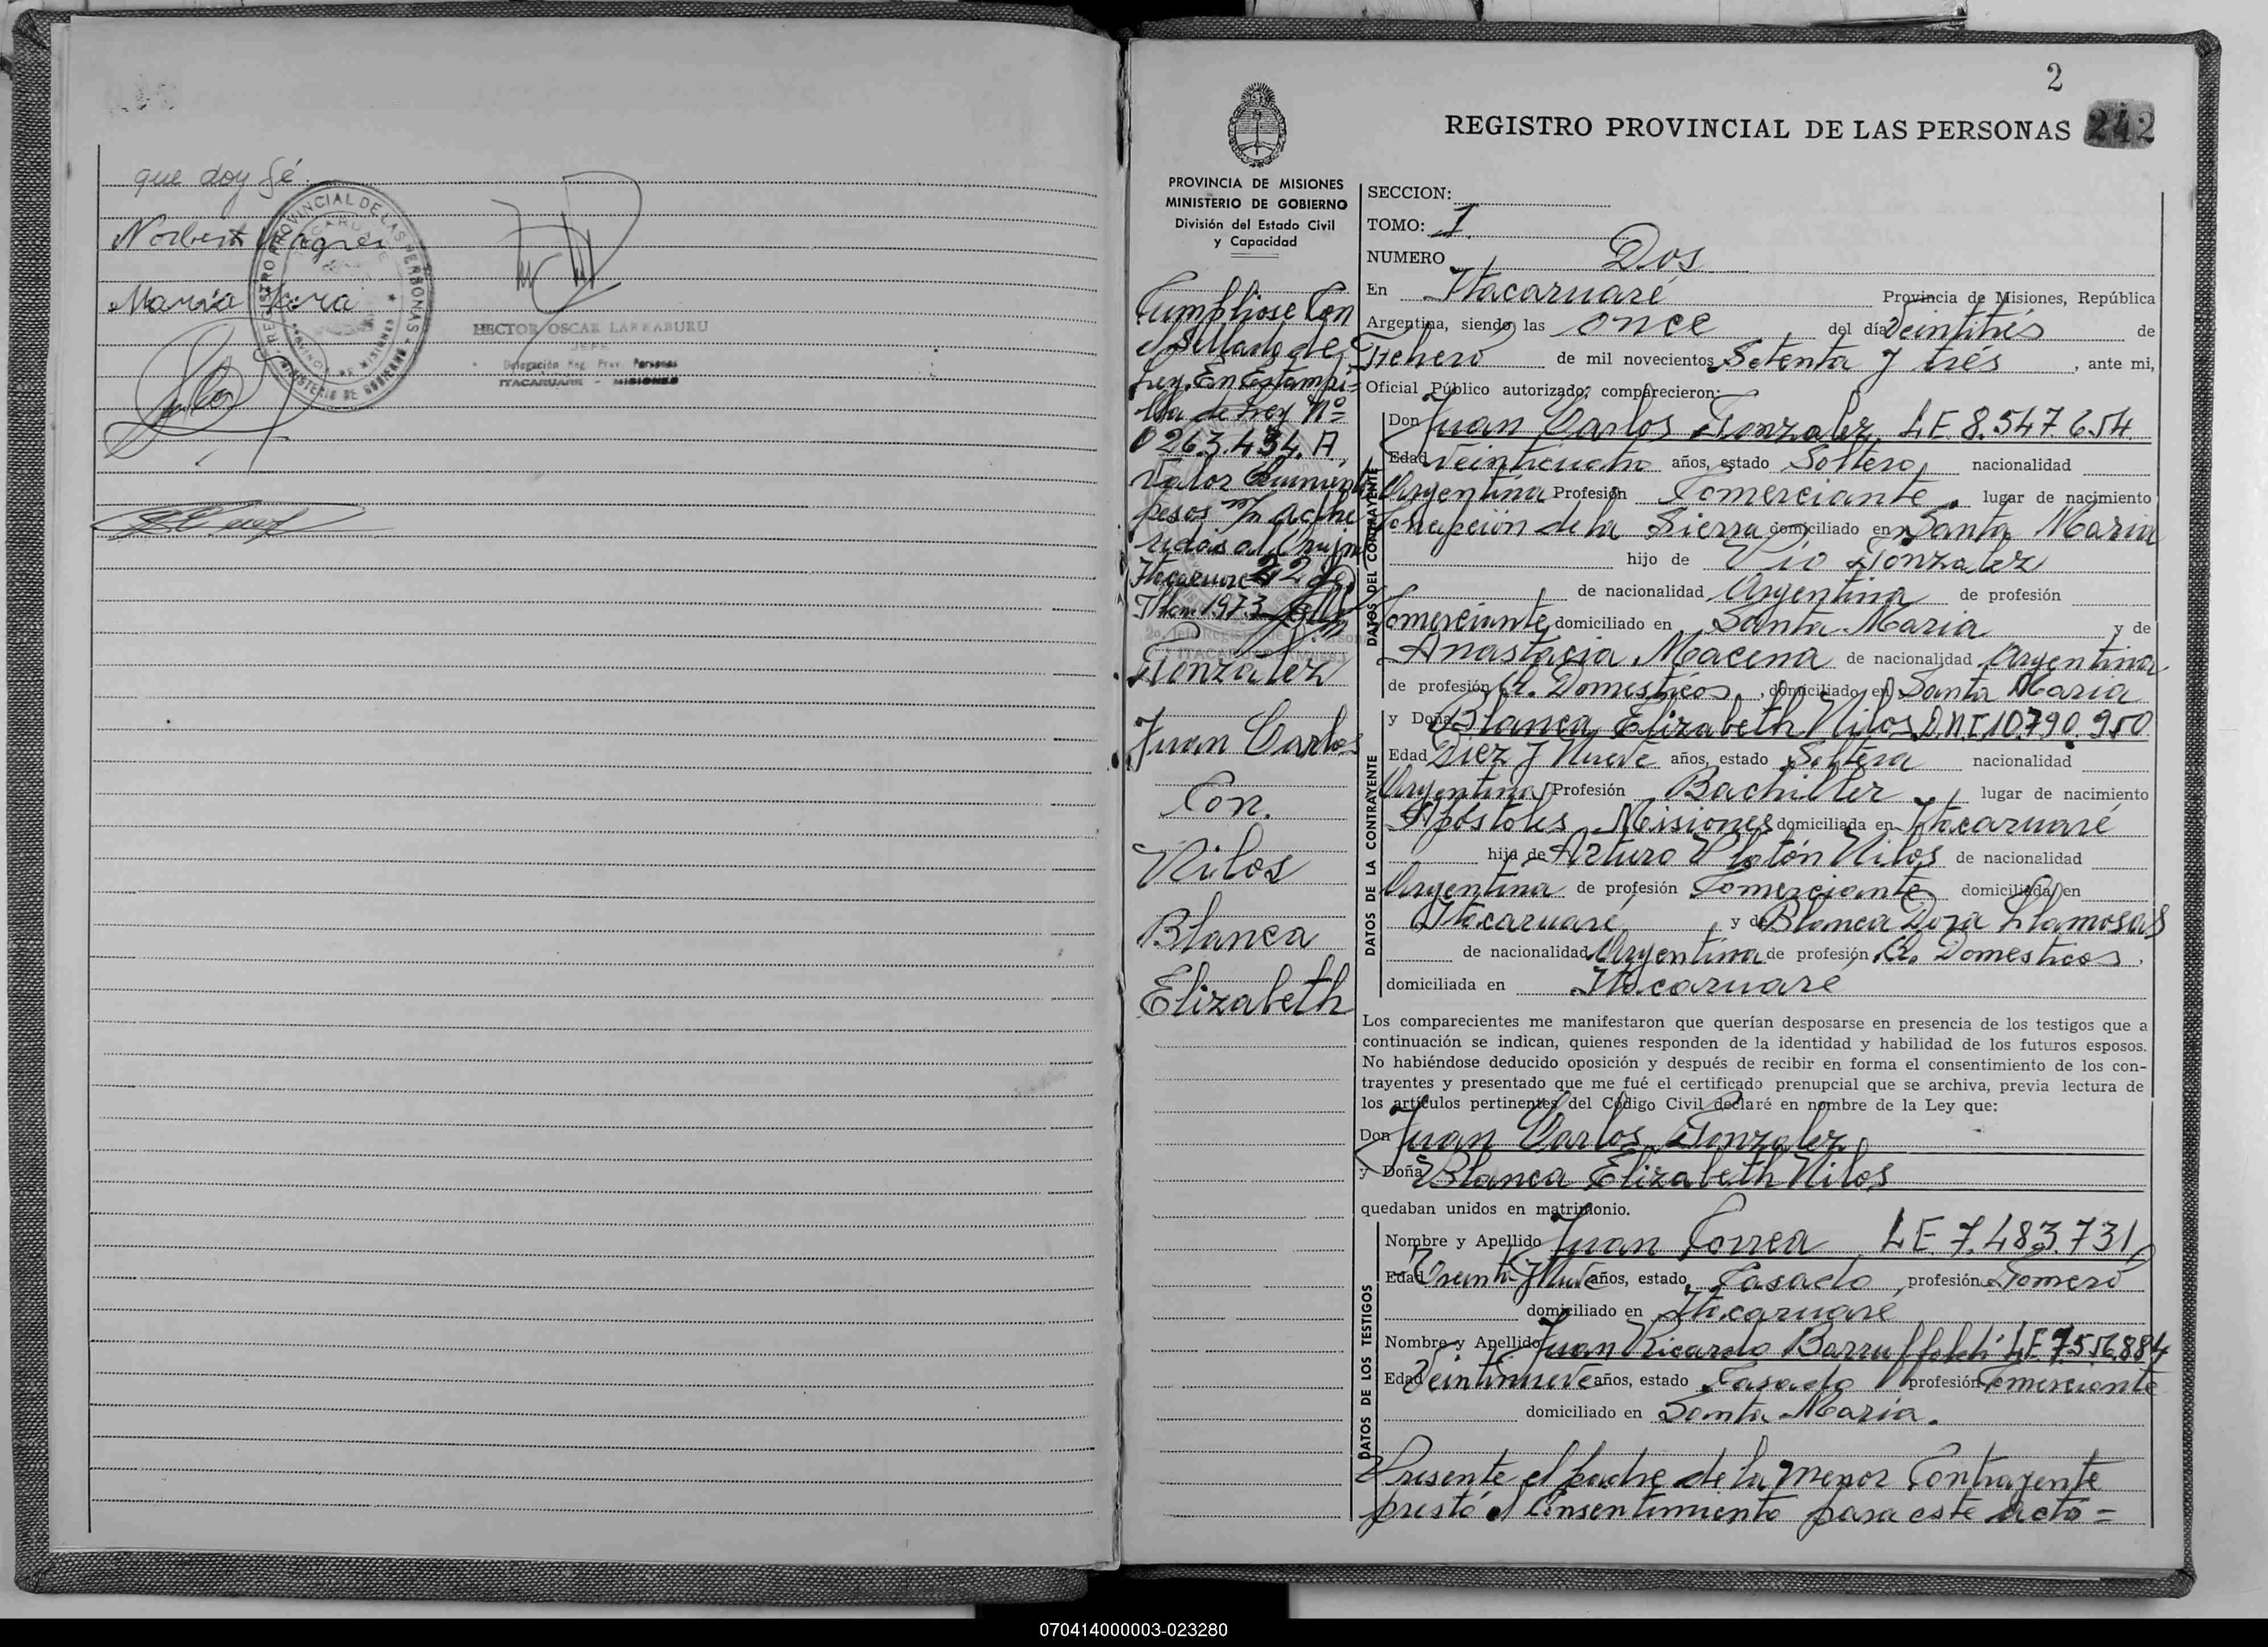 que doy fé.
Norberto Wagner
María Jara
REGISTRO PROVINCIAL DE LAS PERSONAS
PROVINCIA DE MISIONES
MINISTERIO DE GOBIERNO
HECTOR OSCAR LARRABURU
JEFE
Delegación Reg. Prov. Personas
ITACARUARE - MISIONES
2
REGISTRO PROVINCIAL DE LAS PERSONAS 242
PROVINCIA DE MISIONES
MINISTERIO DE GOBIERNO
División del Estado Civil
y Capacidad
Cumpliose Con
el Sellado de
Ley. En Estampi=
lla de Ley Nº
0263.434. A,
Valor Quinientos
pesos m/n adhe
ridas al
Itacaruaré 22 de
1973
Gonzalez
Juan Carlos
Con.
Nilos
Blanca
Elizabeth
SECCION:
TOMO: 1
NUMERO Dos
En Itacaruaré Provincia de Misiones, República
Argentina, siendo las once del día Veintitrés de
Febrero de mil novecientos Setenta y trés, ante mi,
Oficial Público autorizado; comparecieron:
DATOS DEL CONTRAYENTE
Don Juan Carlos Gonzalez, LE 8.547.654
Edad Veinticuatro años, estado Soltero, nacionalidad
Argentina Profesión Comerciante, lugar de nacimiento
Concepción de la Sierra domiciliado en Santa Maria
hijo de Pío Gonzalez
de nacionalidad Argentina de profesión
Comerciante domiciliado en Santa Maria y de
Anastacia Macena de nacionalidad Argentina
de profesión Q. Domesticos, domiciliado en Santa Maria
DATOS DE LA CONTRAYENTE
y Doña Blanca Elizabeth Nilos D.N.I 10.790.950
Edad Diez y Nueve años, estado Soltera nacionalidad
Argentina Profesión Bachiller, lugar de nacimiento
Apóstoles Misiones domiciliada en Itacaruaré
hija de Arturo Platón Nilos de nacionalidad
Argentina de profesión Comerciante domiciliada en
Itacaruaré, y de Blanca Dora Llamosas
de nacionalidad Argentina de profesión Q. Domesticos.
domiciliada en Itacaruaré
Los comparecientes me manifestaron que querían desposarse en presencia de los testigos que a
continuación se indican, quienes responden de la identidad y habilidad de los futuros esposos.
No habiéndose deducido oposición y después de recibir en forma el consentimiento de los con-
trayentes y presentado que me fué el certificado prenupcial que se archiva, previa lectura de
los artículos pertinentes del Código Civil declaré en nombre de la Ley que:
Don Juan Carlos Gonzalez
y Doña Blanca Elizabeth Nilos
quedaban unidos en matrimonio.
DATOS DE LOS TESTIGOS
Nombre y Apellido Juan Correa LE 7.483.731
Edad Treinta y Nueve años, estado Casado, profesión Gomero
domiciliado en Itacaruaré
Nombre y Apellido Juan Ricardo LE 7.556.884
Edad Veintinueve años, estado Casado profesión Comerciante
domiciliado en Santa Maria.
Presente el padre de la menor Contrayente
prestó el Consentimiento para este acto =
070414000003-023280